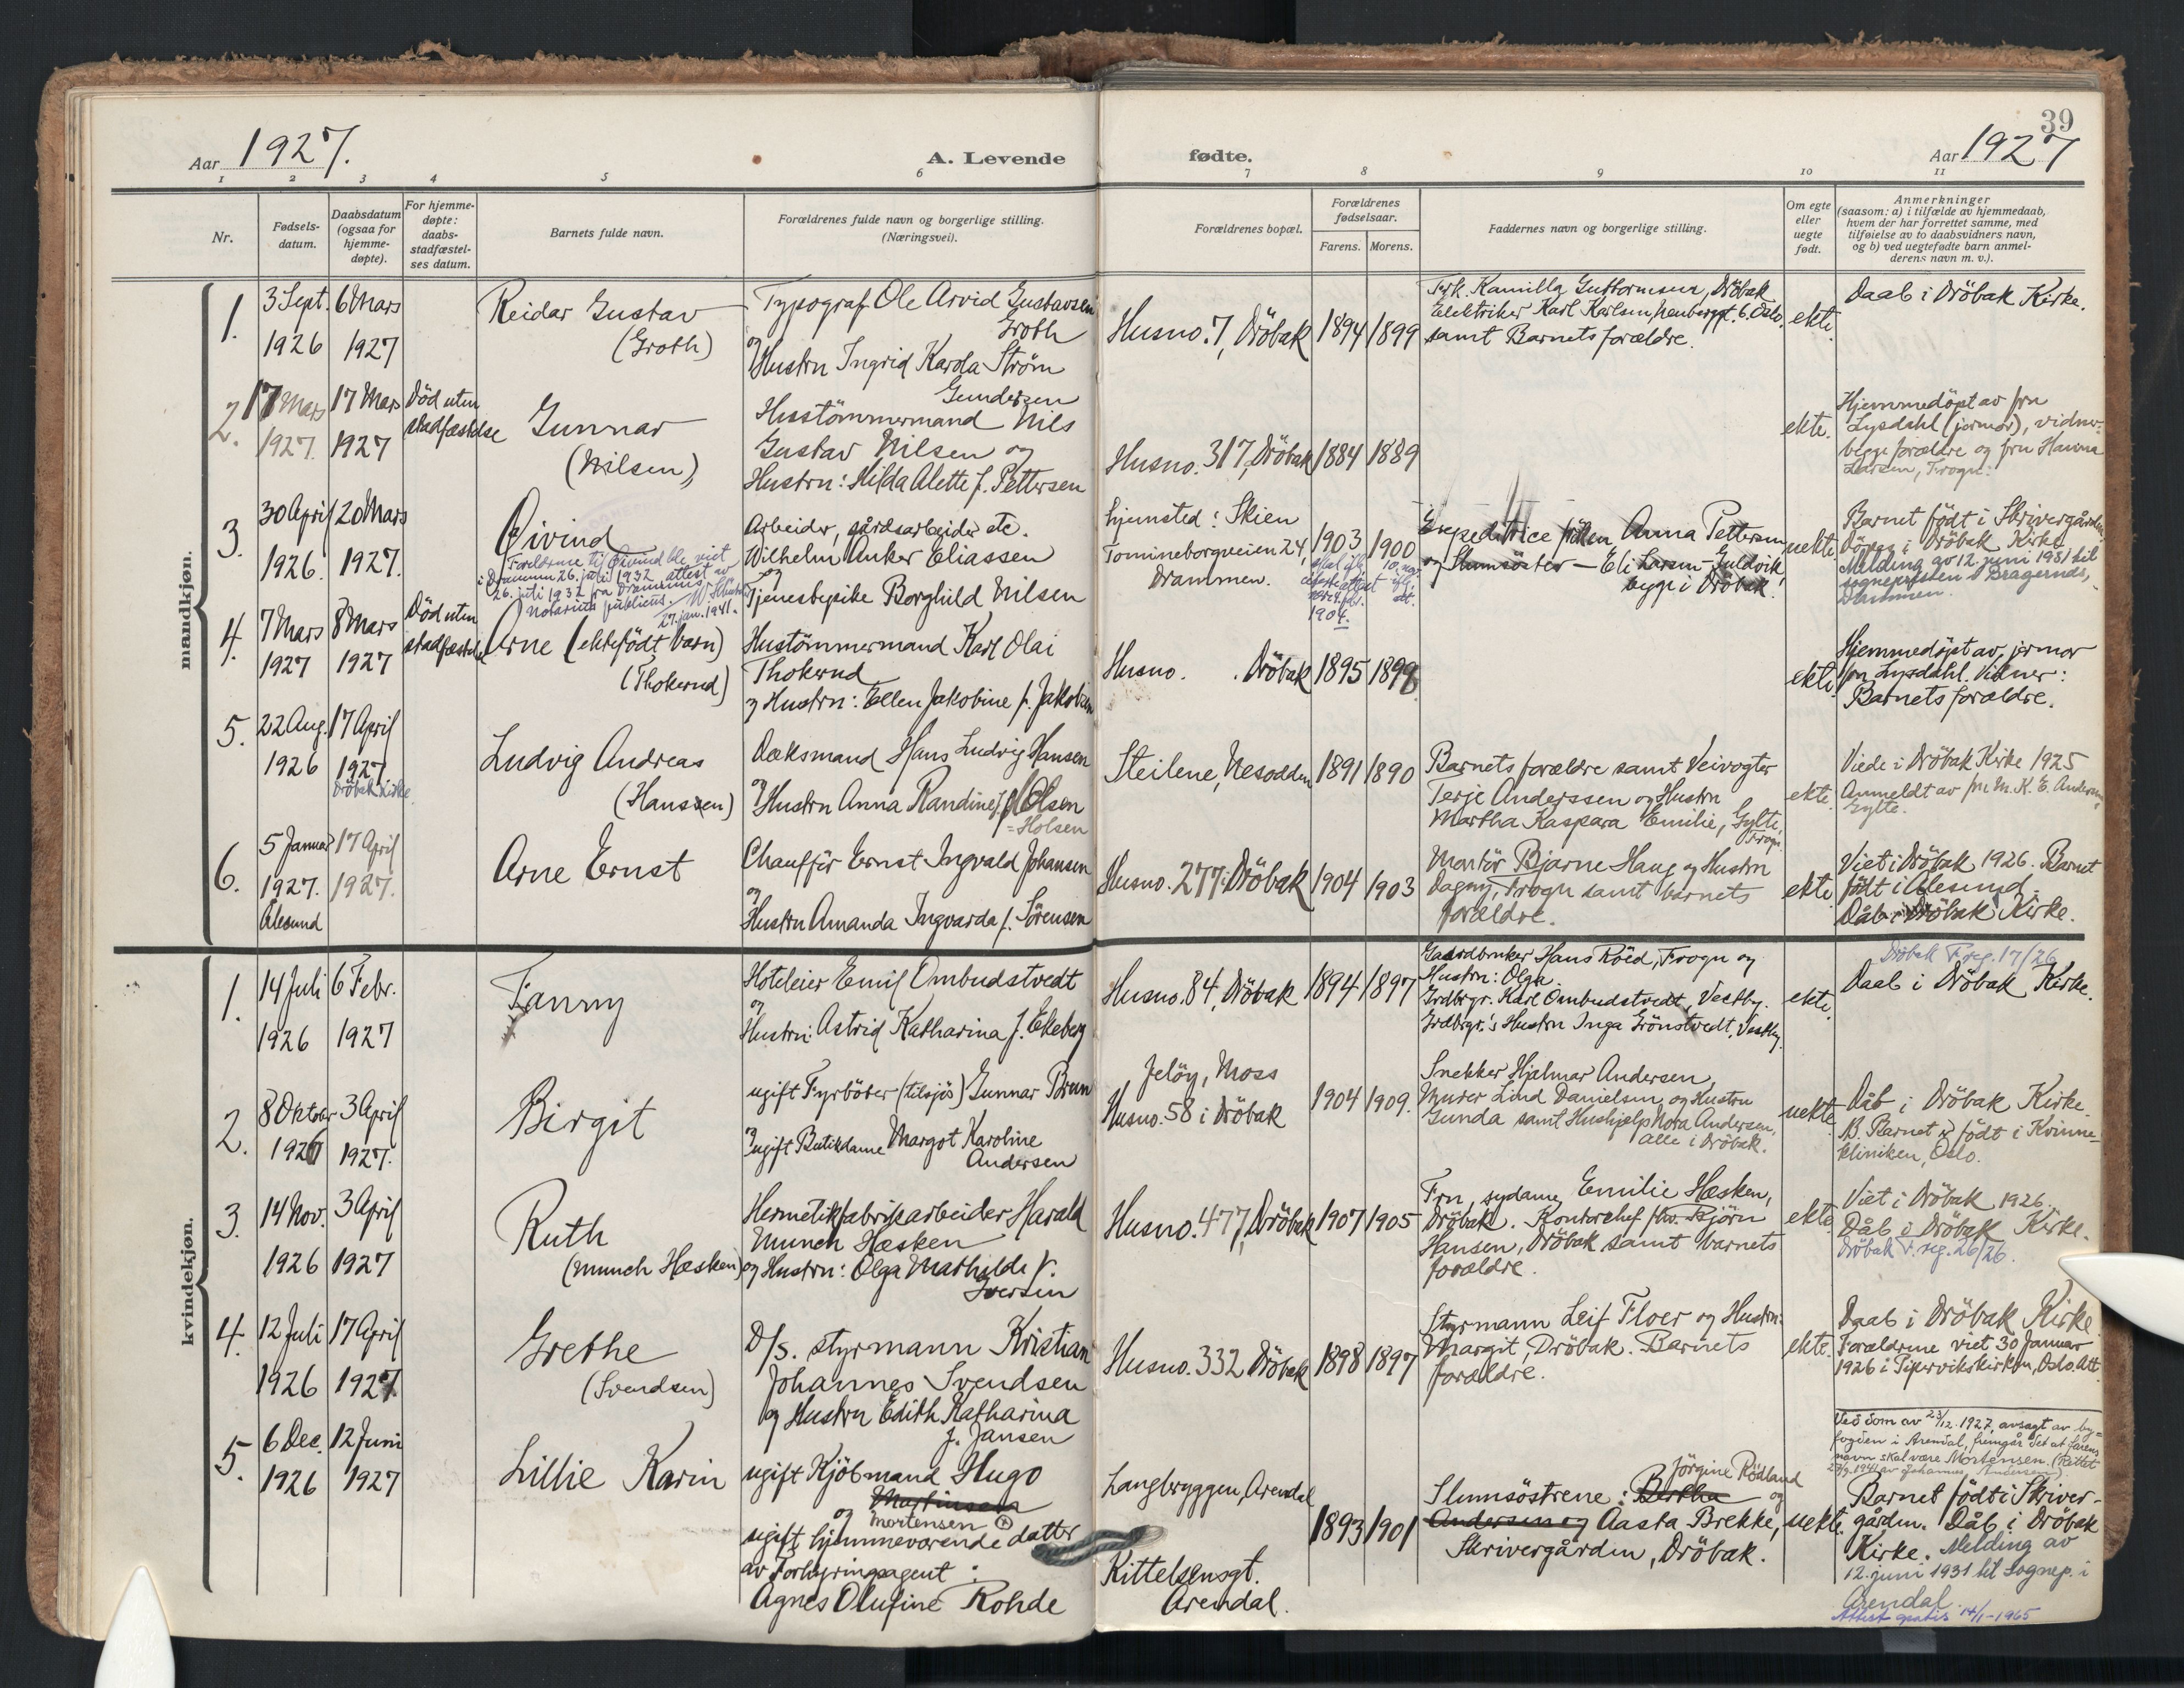 39
Aar 1927.
A. Levende
fødte.
Aar 1927
1 2 3 4 5 6 7 8 9 10 11
Nr.
Fødsels-
datum.
Daabsdatum
(ogsaa for
hjemme-
døpte).
For hjemme-
døpte:
daabs-
stadfæstel-
ses datum.
Barnets fulde navn.
Forældrenes fulde navn og borgerlige stilling.
(Næringsvei).
Forældrenes bopæl.
Forældrenes
fødselsaar.
Farens. Morens.
Faddernes navn og borgerlige stilling.
Om egte
eller
uegte
født.
Anmerkninger
(saasom: a) i tilfælde av hjemmedaab,
hvem der har forrettet samme, med
tilføielse av to daabsvidners navn,
og b) ved uegtefødte barn anmel-
derens navn m. v.).
mandkjøn.
1.
3 Sept.
1926
6 Mars
1927
Reidar Gustav
(Groth)
Typograf Ole Arvid Gustavsen
Groth
og
Hustru Ingrid Karda Strøm
Gundersen
Husno. 7, Dröbak
1894 1899
Frk. Kamilla Guttormsen, Dröbak
Elektriker Karl Karlsen, 6. Oslo.
samt Barnets forældre.
ekte.
Daab i Dröbak Kirke.
2.
17 Mars
1927.
17 Mars
1927
Död uten
stadfæstelse
Gunnar
(Nilsen)
Husstömmermand Nils
Gustav Nilsen og
Hustru: Hilda Alette f. Pettersen
Husno. 317, Dröbak
1884 1889
ekte.
Hjemmedöpt av fru
Lysdahl (jormor), vidner:
begge forældre og fru Hanna
Larsen, Frogn.
3.
30 April
1926.
20 Mars
1927.
Öivind
Forældrene til Öivind ble viet
i Drammen 26. juli 1932 attest av
26. juli 1932 fra Drammens
notarius publicus.
27. jan. 1941.
Arbeider, gårdsarbeider etc.
Wilhelm Anker Eliassen
og
Tjenestepike Borghild Nilsen
hjemsted: Skien
Tomineborgveien 24,
Drammen.
1903 1900
skal iflg.
1904.
Expeditrice fröken Anna Pettersen
og Slumsöster – Eli Larsen-Guldvik
begge i Dröbak.
uekte
Barnet födt i Skrivergården.
Döpes i Dröbak Kirke
Melding av 12. juni 1931 til
sognepresten i Bragernes,
Drammen.
4.
7 Mars
1927
8 Mars
1927
Död uten
stadfæstelse
Arne (ektefödt barn)
(Thokerud)
Hustömmermand Karl Olai
Thokerud
og Hustru: Ellen Jakobine f. Jakobsen
Husno. . Dröbak
1895 1898
ekte.
Hjemmedöpt av jormor
fru Lysdahl. Vidner:
Barnets forældre.
5.
22 Aug.
1926
17 April
1927
Dröbak Kirke.
Ludvig Andreas
(Hanssen)
Dæksmand Hans Ludvig Hansen
og
Hustru Anna Randine f. Olsen
= Holsen
Steilene, Nesodden
1891 1890
Barnets forældre samt Veivogter
Terje Anderssen og Hustru
Martha Kaspara Emilie, Gylte,
Frogn.
ekte.
Viede i Dröbak Kirke 1925
Anmeldt av fru M. K. E. Andersen,
Gylte.
6.
5 Januar
1927.
Ålesund
17 April
1927.
Arne Ernst
Chauffür Ernst Ingvald Johansen
og
Hustru Amanda Ingvarda f. Sörensen
Husno. 277. Dröbak
1904 1903
Montör Bjarne Haug og Hustru
Dagny, Frogn samt barnets
forældre.
ekte
Viet i Dröbak 1926. Barnet
födt i Ålesund.
Dåb i Dröbak Kirke.
kvindekjøn.
1.
14 Juli
1926
6 Febr.
1927
Fanny
Hoteleier Emil Ombudstvedt
og
Hustru: Astrid Katharina f. Ekeberg
Husno. 84, Dröbak
1894 1897
Gaardbruker Hans Röed, Frogn og
Hustru: Olga.
Grdbrgr. Karl Ombudstvedt, Vestby.
Grdbrgr.'s Hustru Inga Grönstvedt, Vestby.
ekte.
Dröbak F. reg. 17/26
Daab i Dröbak Kirke.
2.
8 Oktober
1926
3 April
1927.
Birgit
ugift Fyrböter (tilsjös) Gunnar Brun
og
ugift Butikdame Margot Karoline
Andersen
Jelöy, Moss
Husno. 58 i Dröbak
1904 1909.
Snekker Hjalmar Andersen,
Murer Lind Danielsen og Hustru
Gunda samt Hushjelp Nora Andersen,
alle i Dröbak.
uekte
Dåb i Dröbak Kirke.
N. Barnet er födt i Kvinne-
kliniken, Oslo.
3.
14 Nov.
1926
3 April
1927
Ruth
(Munch Hæsken)
Hermetikfabrikarbeider Harald
Munch Hæsken
og Hustru: Olga Mathilde f.
Iversen
Husno. 477, Dröbak
1907 1905
Fru, sydame Emilie Hæsken,
Dröbak. Kontorchef Björn
Hansen, Dröbak samt barnets
forældre.
ekte
Viet i Dröbak 1926.
Dåb i Dröbak Kirke.
Dröbak F. reg. 26/26.
4.
12 Juli
1926
17 April
1927
Grethe
(Svendsen)
D/s. styrmann Kristian
Johannes Svendsen
og Hustru Edith Katharina
f. Jansen
Husno. 332 Dröbak
1898 1897
Styrmann Leif Floer og Hustru:
Margit, Dröbak. Barnets
forældre.
ekte.
Daab i Dröbak Kirke
Forældrene viet 30 Januar
1926 i Pipervikskirken, Oslo. Att.
5.
6 Dec.
1926
12 Juni
1927
Lillie Karin
ugift Kjöbmand Hugo
Martinsen
og Mortensen
ugift hjemmeværende datter
av Forhyringsagent :
Agnes Olufine Rohde
Langbryggen, Arendal
Kittelsensgt.
Arendal.
1893 1901
Jörgine Rödland
Slumsöstrene: Bertha og
Andersen og Aasta Brekke,
Skrivergården, Dröbak.
uekte.
Ved dom av 23/12. 1927, avsagt av by-
fogden i Arendal, fremgår det at farens
navn skal være Mortensen. (Rettet
Barnet födt i Skriver-
gården. Dåb i Dröbak
Kirke. Melding av
12. juni 1931 til Sognep. i
Arendal.
Attest gratis 14/1-1965